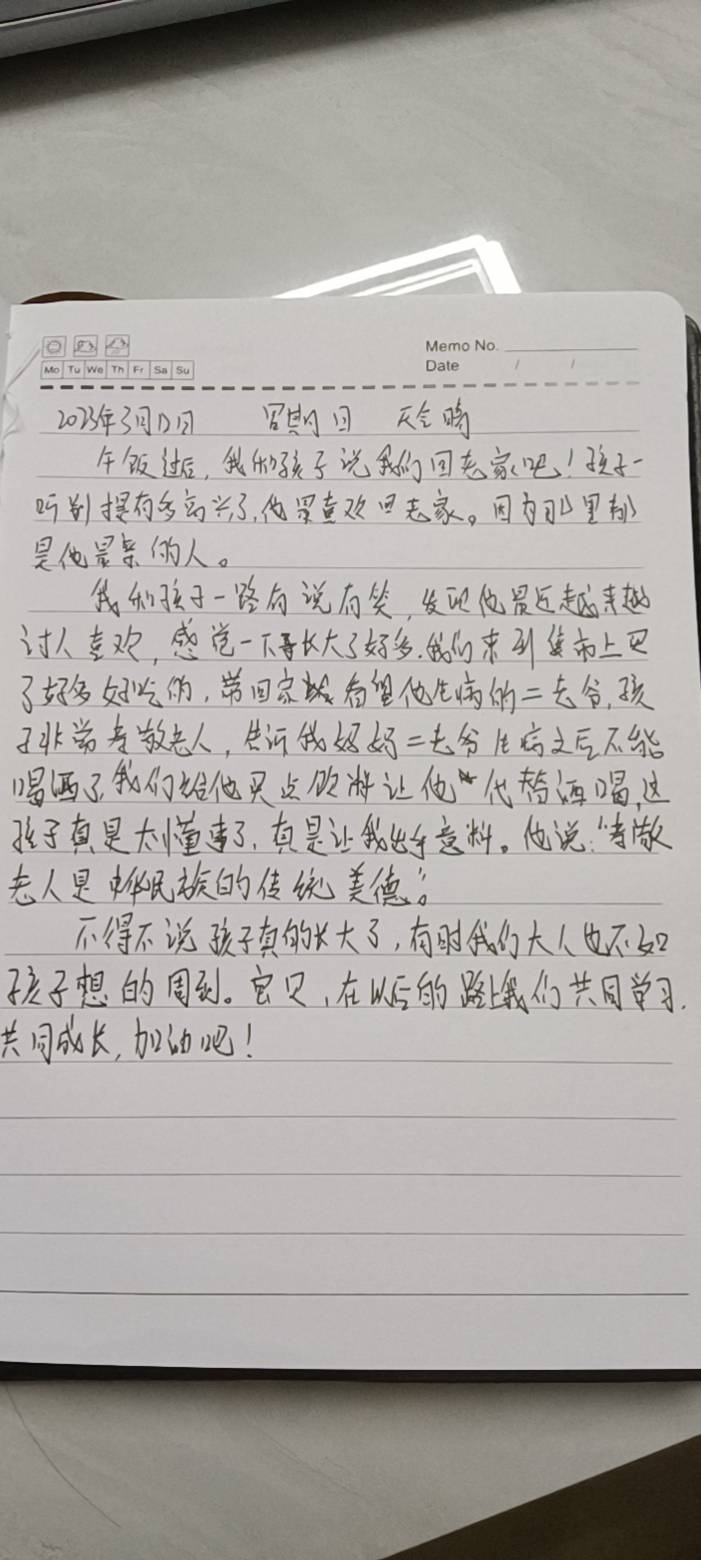 Memo No.
Mo Tu We Th Fr Sa Su
Date / /
2023年3月12日 星期日 天气晴
午饭过后，我和孩子说我们回老家吧！孩子一
听别提有多高兴了，他最喜欢回老家。因为那里都
是他最亲的人。
我和孩子一路有说有笑，发现他最近越来越
讨人喜欢，感觉一下子长大了好多。我们来到集市上买
了好多好吃的，带回家看望他生病的二老爷，孩
子非常孝敬老人，告诉我妈妈二老爷生病之后不能
喝酒了，我们给他买点饮料让他代替酒喝，这
孩子真是太懂事了，真是让我出乎意料。他说：“孝敬
老人是中华民族的传统美德”。
不得不说孩子真的长大了，有时我们大人也不如
孩子想的周到。宝贝，在以后的路上我们共同学习，
共同成长，加油吧！